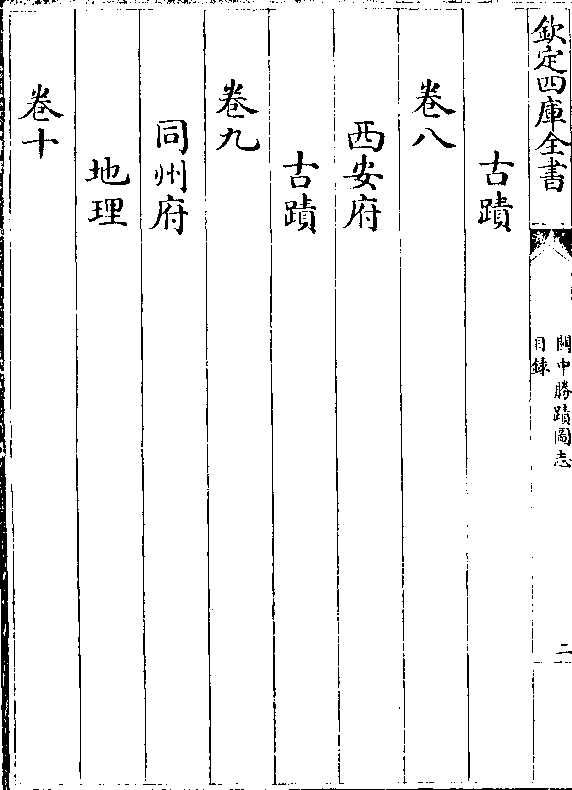 欽定四庫全書
關中勝蹟圖志
目錄
二
古蹟
卷八
西安府
古蹟
卷九
同州府
地理
卷十